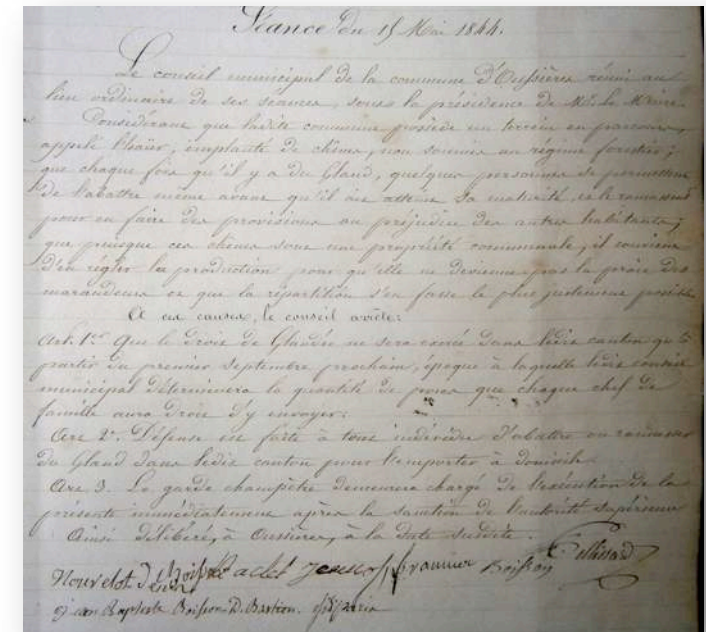 Séance du 15 Mai 1844.
Le conseil municipal de la commune d'Oussières réuni au
lieu ordinaire de ses séances, sous la présidence de Mr. le Maire.
Considérant que ladite commune possède un terrein en parcours,
appelé l'haïer, implanté de chênes, non soumis au régime forestier;
que chaque fois qu'il y a du Gland, quelques personnes se permettent
de l'abattre même avant qu'il ait atteint sa maturité, et le ramassent
pour en faire des provisions au préjudice des autres habitants;
que puisque ces chênes sont une propriété communale, il convient
d'en régler la production pour qu'elle ne devienne pas la proie des
maraudeurs et que la répartition s'en fasse le plus justement possible
A ces causes, le conseil arrête:
Art. 1er Que le droit de Glandée ne sera exercé dans ledit canton qu'à
partir du premier Septembre prochain, époque à laquelle ledit conseil
municipal déterminera la quantité de porcs que chaque chef de
famille aura droit d'y envoyer.
Art 2e. Défense est faite à tout individu d'abattre ou ramasser
du Gland dans ledit canton pour l'emporter à domicile.
Art 3. Le garde champêtre demeure chargé de l'exécution de la
présente immédiatement après la sanction de l'autorité supérieure
Ainsi délibéré, à Oussières, à la date susdite.
Nourelot Boisson
jean Baptiste Boisson D. Bastien.